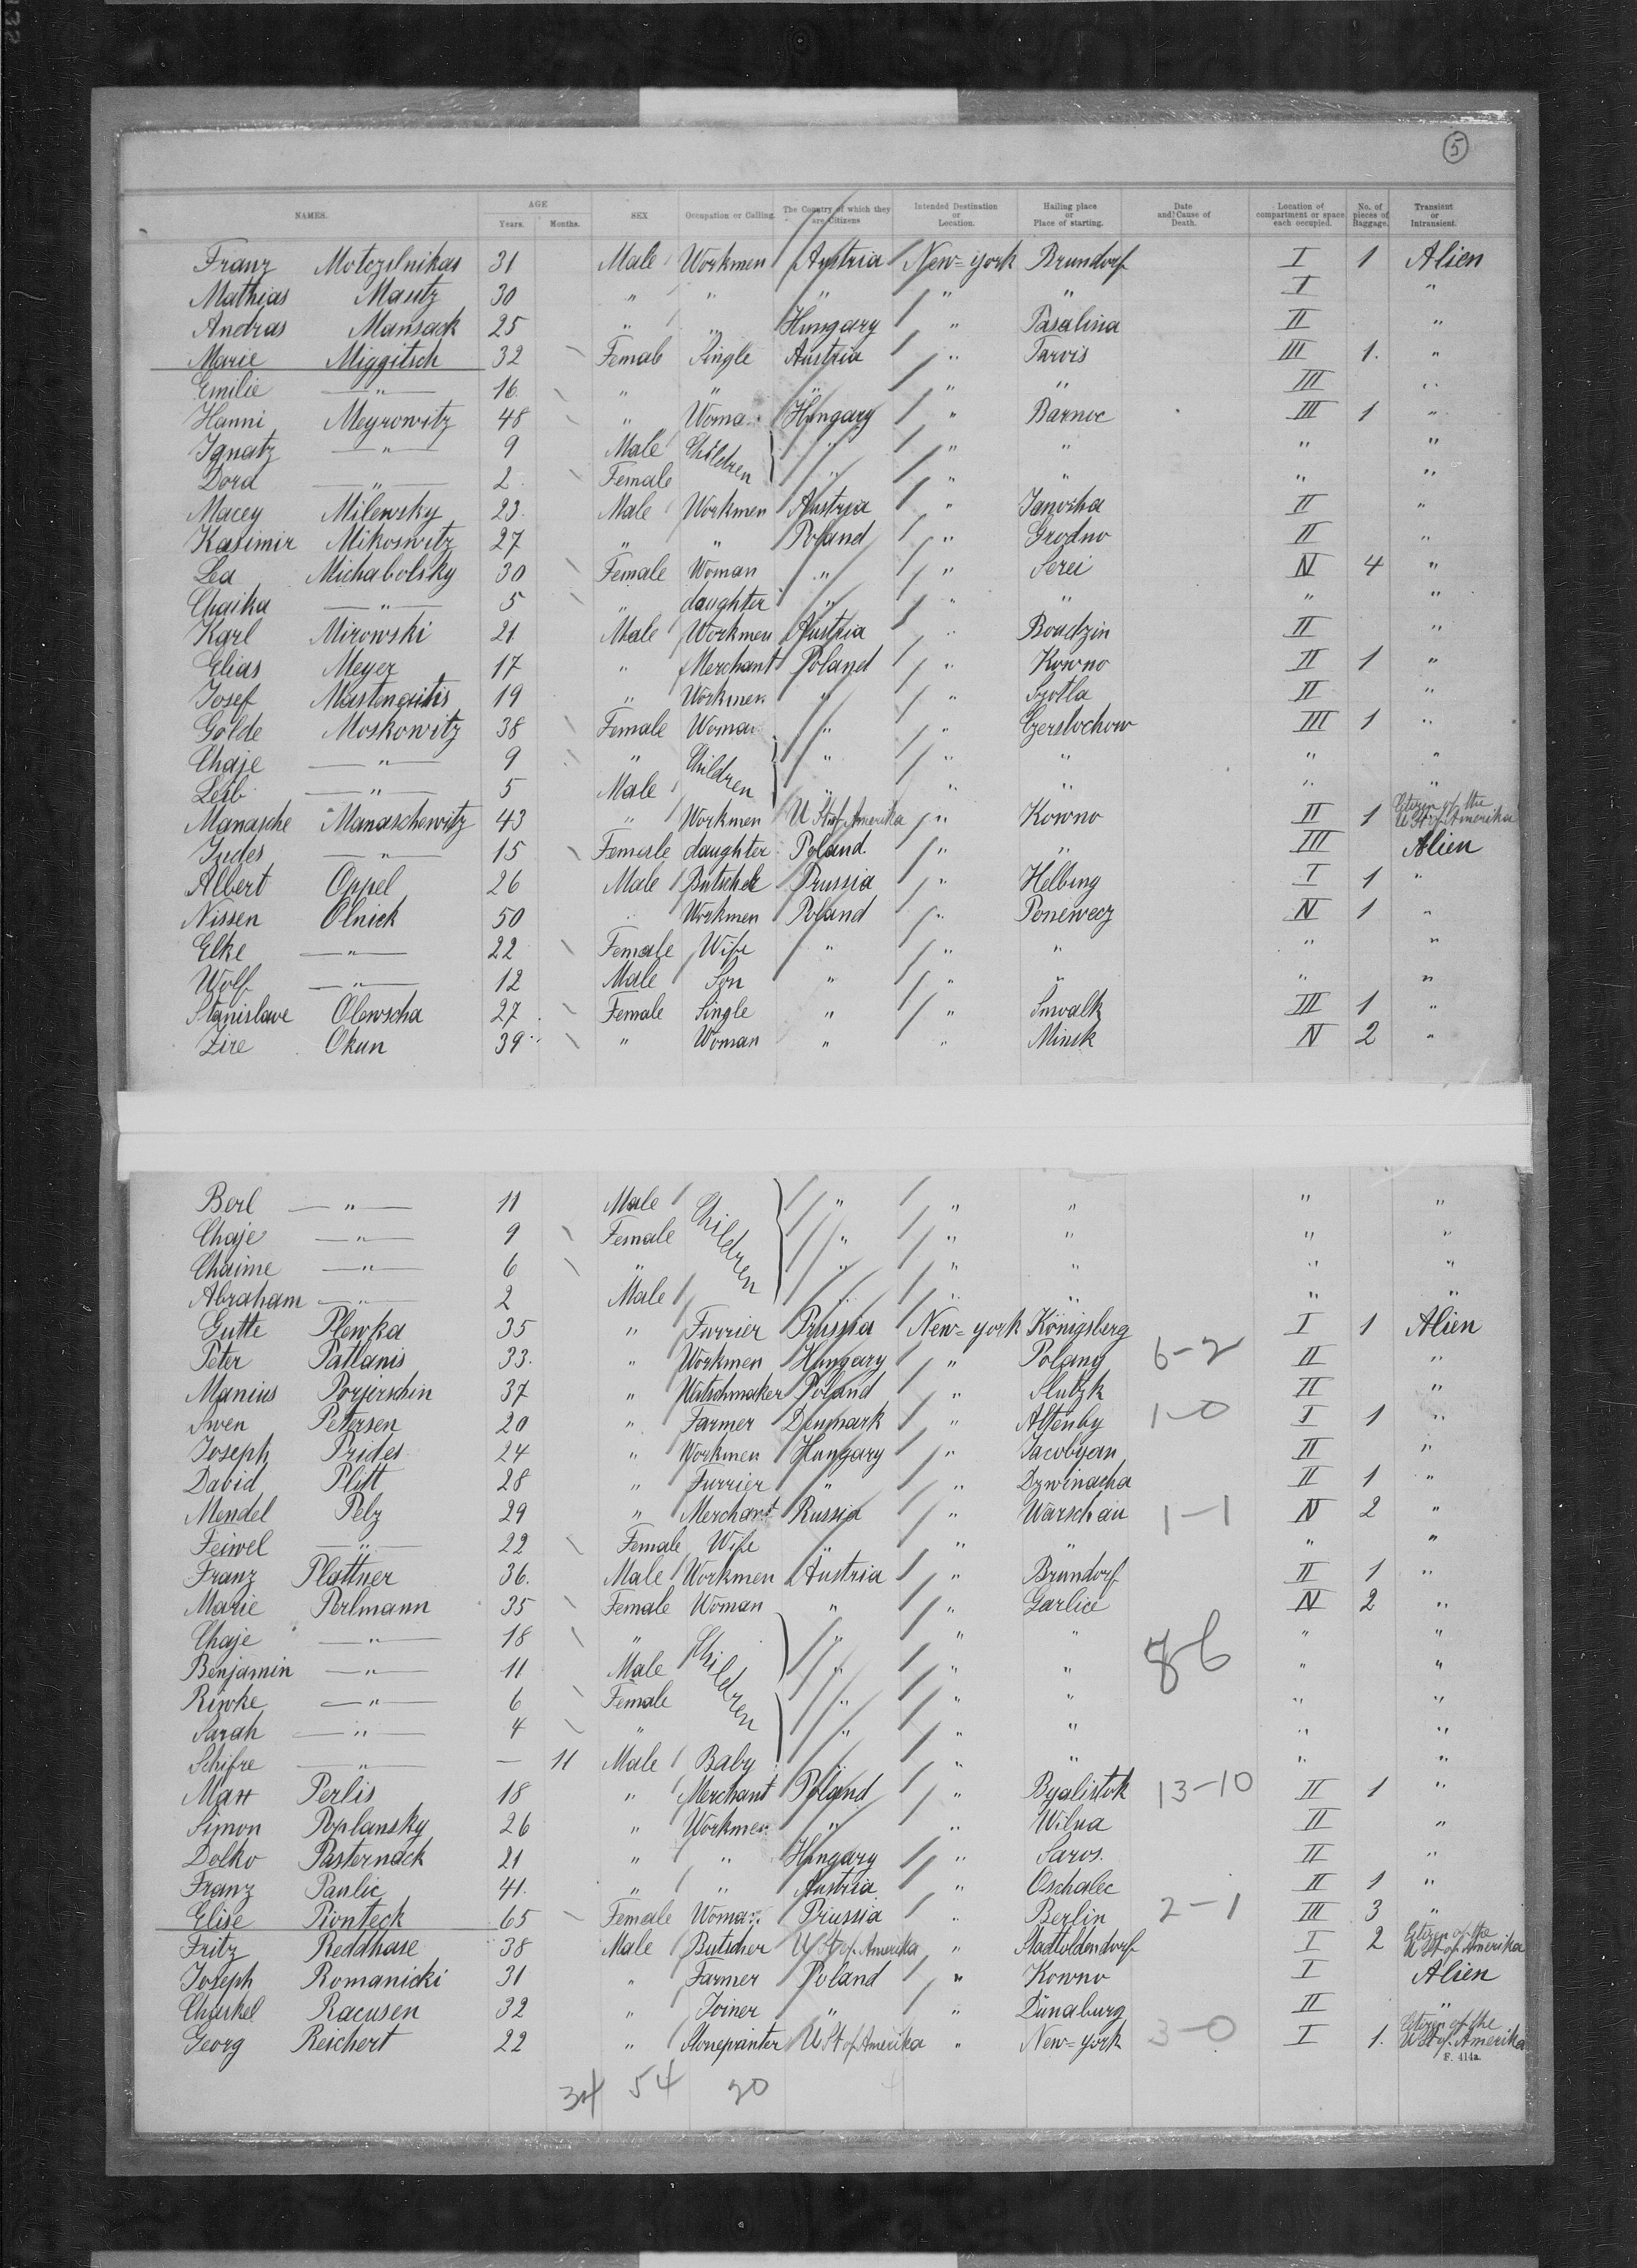 5
NAMES. AGE Years. Months. SEX Occupation or Calling. The Country of which they are Citizens Intended Destination or Location. Hailing place or Place of starting. Date and Cause of Death. Location of compartment or space each occupied. No. of pieces of Baggage. Transient or Intransient.
Franz 31 Male Workmen Austria New-york Brundorf I 1 Alien
Mathias Mautz 30 " " " " " I "
Andras Mansack 25 " " Hungary " Pasalina II "
Marie Miggitsch 32 Female Single Austria " Tarvis III 1. "
Emilie " 16. " " " " " III "
Hanni Meyrowitz 48 " Woma Hungary " Barnoc III 1 "
Ignatz " 9 Male Children " " " " "
Dora " 2 Female " " " " "
Macey Milewsky 23. Male Workmen Austria " Janovka II "
Kasimir Mikoswitz 27 " " Poland " Grodno II "
Lea Michabolsky 30 Female Woman " " Serei N 4 "
Chaika " 5 " daughter " " " " "
Karl Mirowski 21 Male Workmen Austria " Boudzin II "
Elias Meyer 17 " Merchant Poland " Kowno II 1 "
Josef 19 " Workmen " " Szotla II "
Golde Moskowitz 38 Female Woman " " Czerslochow III 1 "
Chaje " 9 " Children " " " " "
Leib " 5 Male " " " " "
Manasche Manaschewitz 43 " Workmen U St of Amerika " Kowno II 1 Citizen of the U St of Amerika
Judes " 15 Female daughter Poland. " " III Alien
Albert Oppel 26 Male Butscher Prussia " Helbing I 1 "
Nissen Olnick 50 " Workmen Poland " Ponewecz N 1 "
Elke " 22 Female Wife " " " " "
Wolf " 12 Male Son " " " " "
Stanislawe Olewscha 27 Female Single " " Suwalk III 1 "
Zire Okun 39 " Woman " " Minsk N 2 "
Berl " 11 Male Children " " " " "
Chaje " 9 Female " " " " "
Chaime " 6 " " " " " "
Abraham " 2 Male " " " " "
Gutte Plewka 35 " Furrier Prussia New-york Königsberg I 1 Alien
Peter Patlanis 33. " Workmen Hungary " Polany 6-2 II "
Manius Porjerschin 37 " Watschmaker Poland " Slutzk II "
Swen Petersen 20 " Farmer Denmark " Altenby 1-0 I 1 "
Joseph Prides 24 " Workmen Hungary " Jacobyan II "
David Plitt 28 " Furrier " " Dzwinacha II 1 "
Mendel Pelz 29 " Merchant Russia " Warschau 1-1 N 2 "
Feiwel " 22 Female Wife " " " " "
Franz Plattner 36. Male Workmen Austria " Brundorf II 1 "
Marie Perlmann 35 Female Woman " " Garlice N 2 "
Chaje " 18 " Children " " " 86 " "
Benjamin " 11 Male " " " " "
Riwke " 6 Female " " " " "
Sarah " 4 " " " " " "
Schifre " — 11 Male Baby " " " " "
Max Perlis 18 " Merchant Poland " Byalistok 13-10 II 1 "
Simon Poplansky 26 " Workmen " " Wilna II "
Dolko Pasternack 21 " " Hungary " Saros. II "
Franz Paulic 41. " " Austria " Oschalec II 1 "
Elise Pionteck 65 Female Woman Prussia " Berlin 2-1 III 3 "
Fritz Reddhase 38 Male Butscher U St of Amerika " Stadtoldendorf I 2 Citizen of the U St of Amerika
Joseph Romanicki 31 " Farmer Poland " Kowno I Alien
Racusen 32 " Joiner " " Dünaburg II "
Georg Reichert 22 " Stoneprinter U St of Amerika " New-york 3-0 I 1. Citizen of the U St of Amerika
F. 414a.
34 54 20